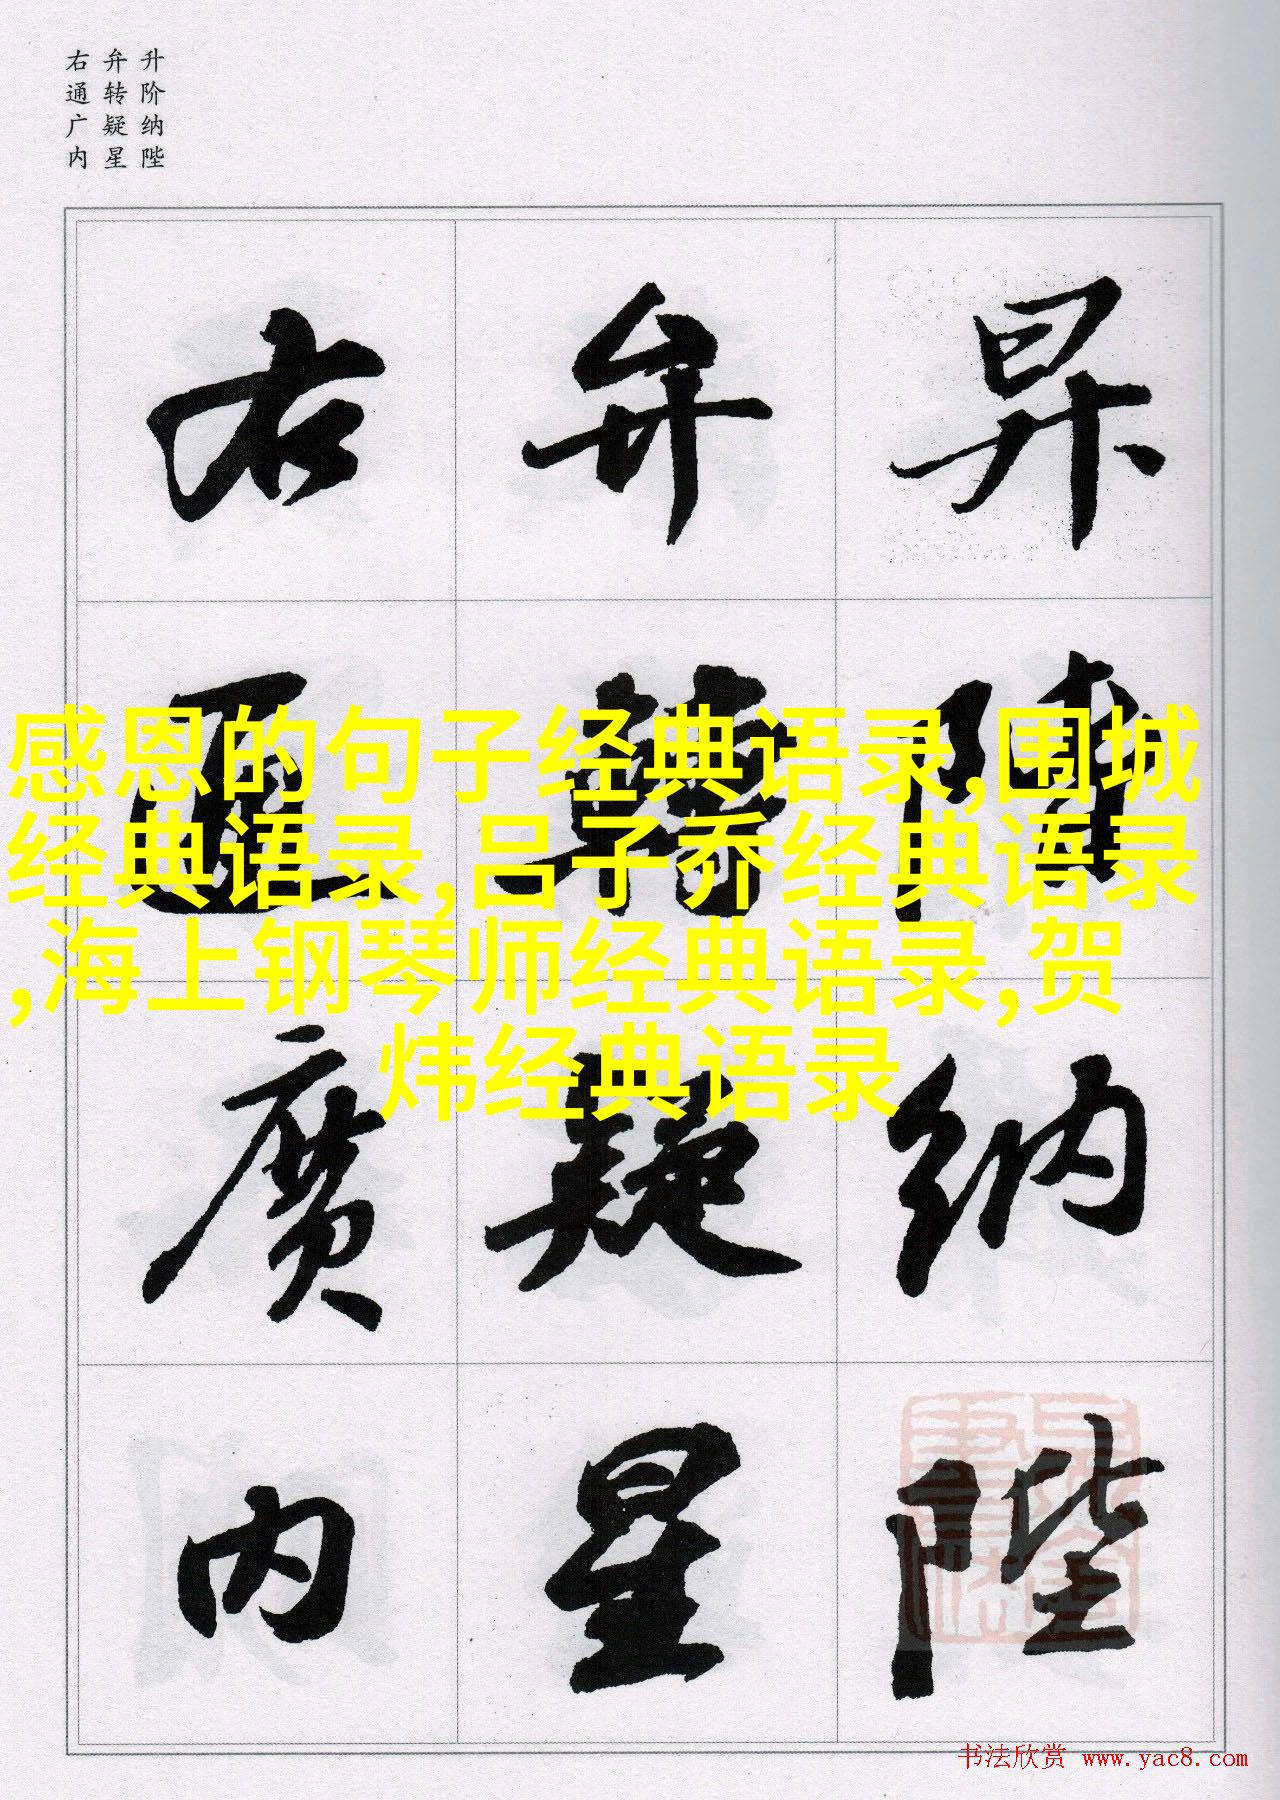 升阶纳陛
弁转疑星
右通广内
昇階納陛
弁轉疑星
右通廣内
感恩的句子经典语录,围城
经典语录,吕子乔经典语录
,海上钢琴师经典语录,贺
炜经典语录
书法欣赏 www.yac8.com